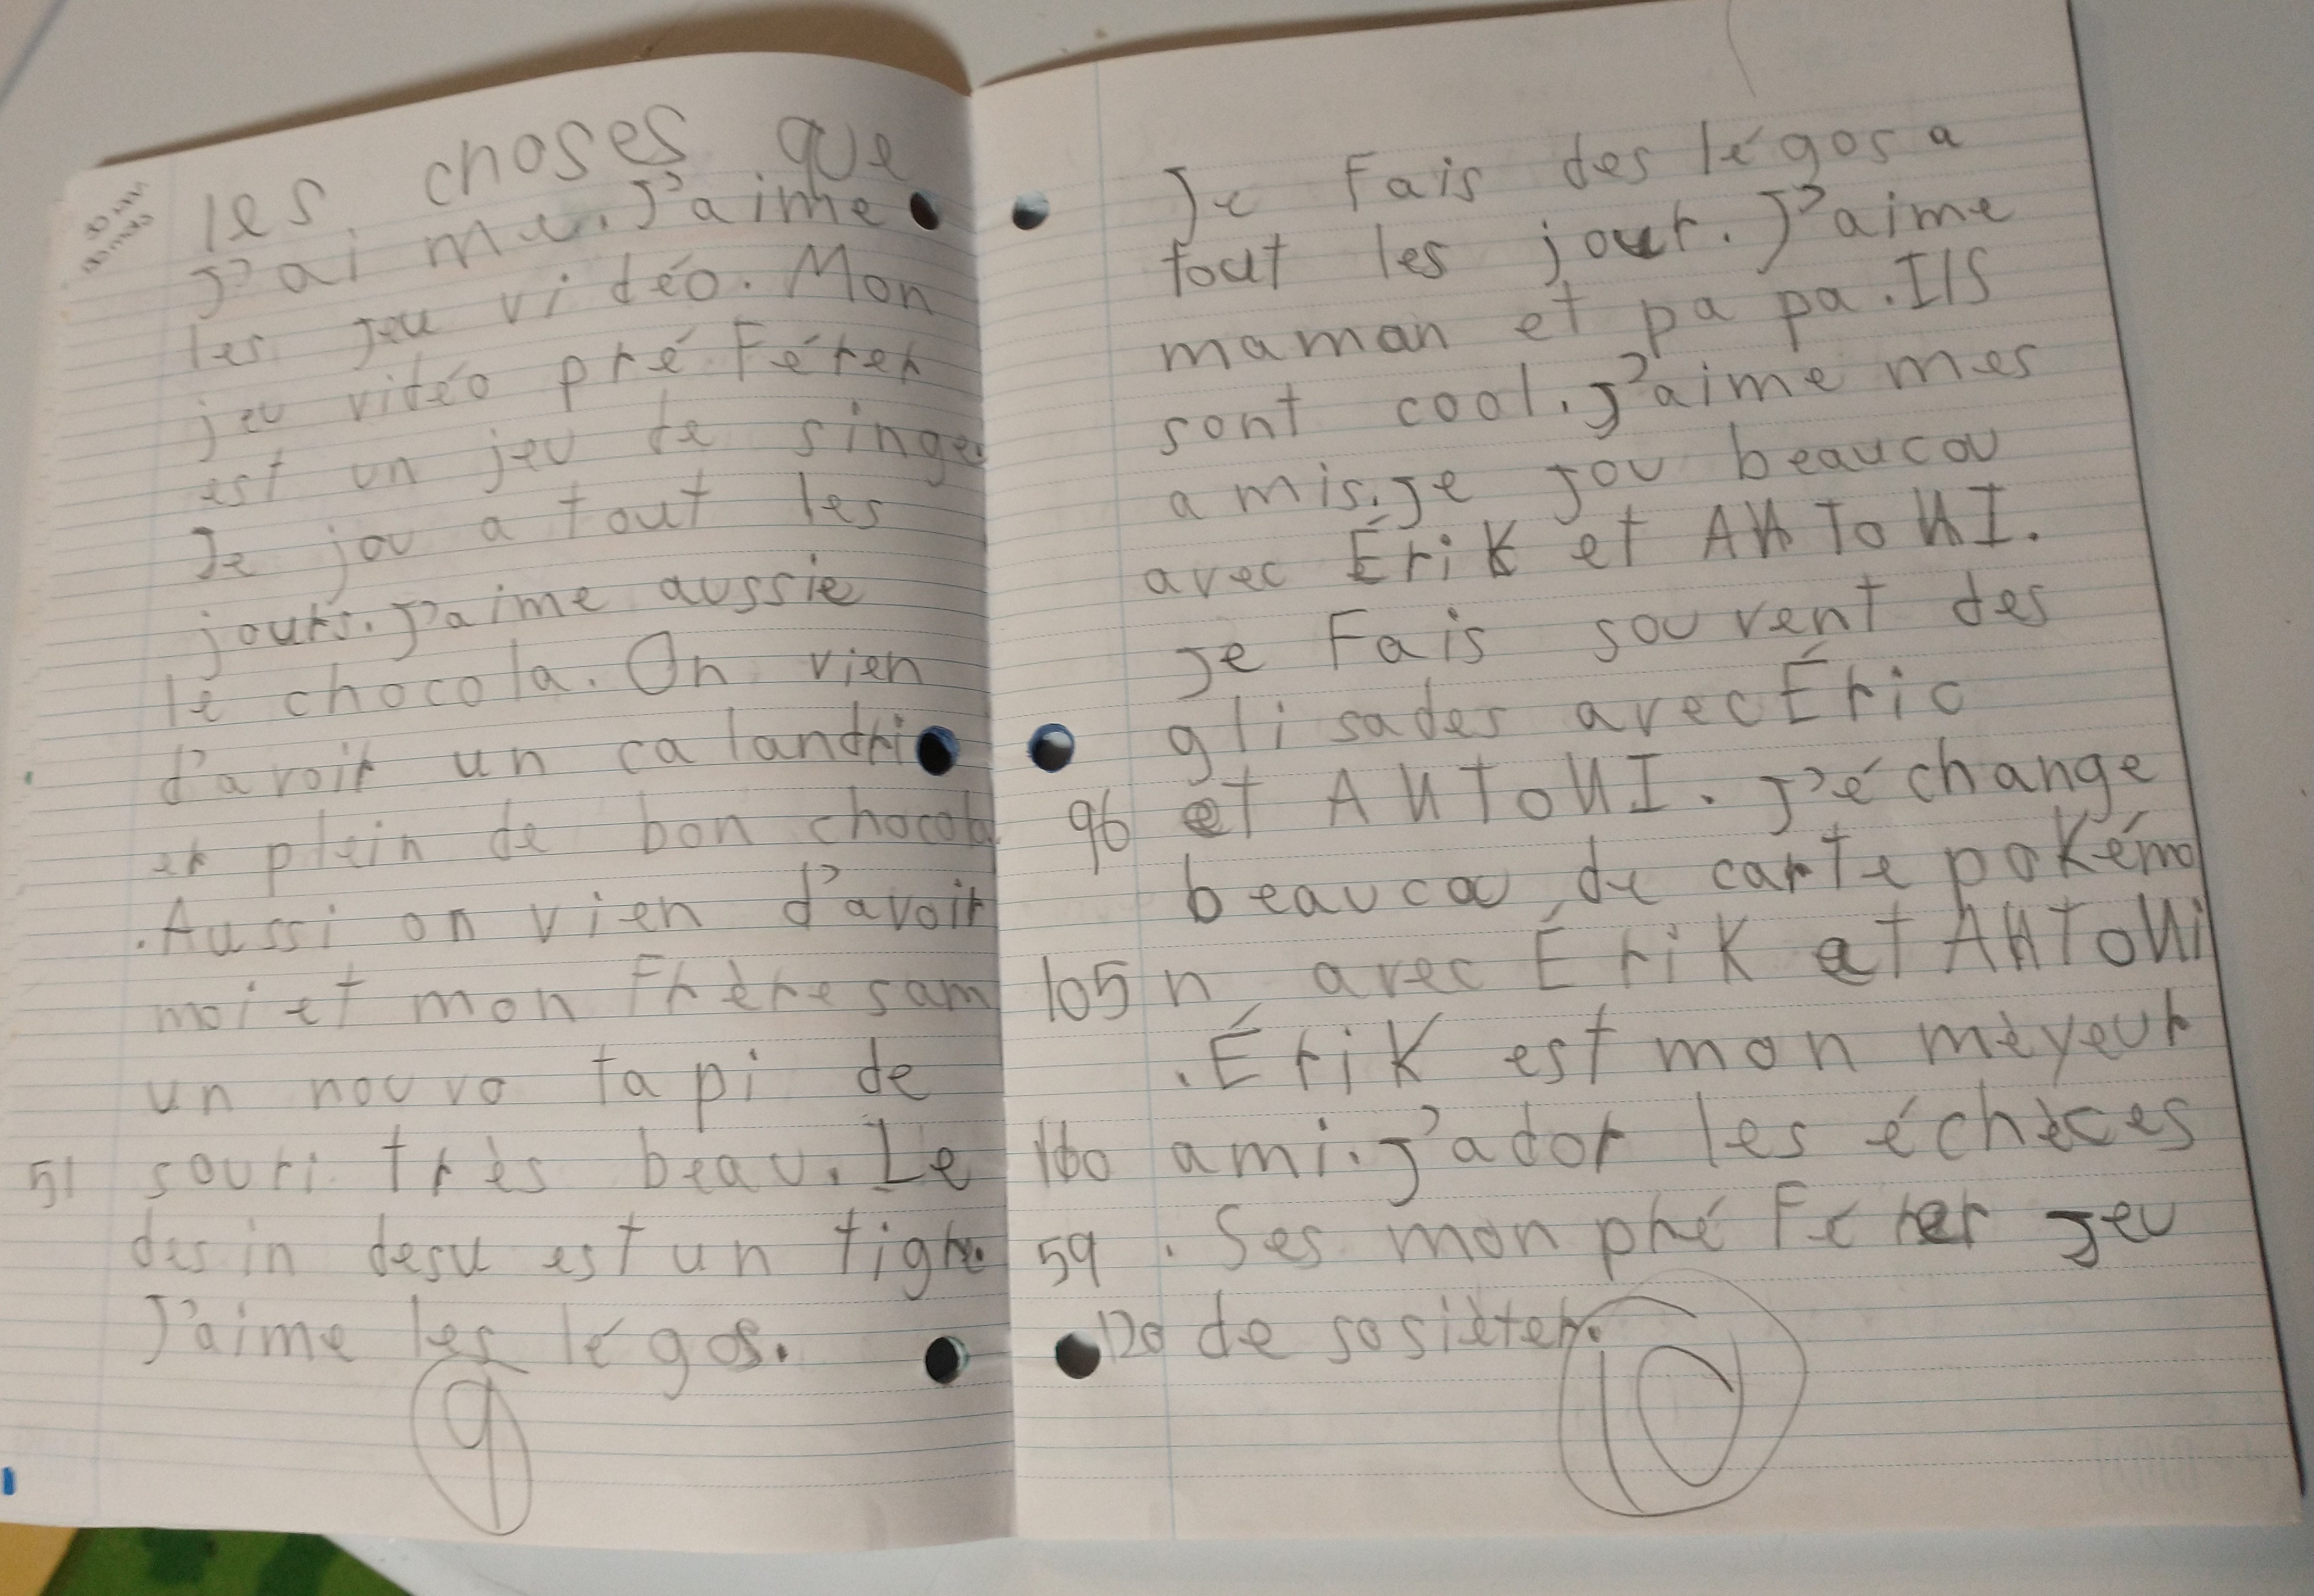 les choses que
J'ai me. J'aime
les jeu vidéo. Mon
jeu vidéo pré Férer
est un jeu de singe.
Je jou a tout les
jours. J'aime aussie
le chocola. On vien
d'avoir un ca landri
er plein de bon chocola
. Aussi on vien d'avoir
moi et mon Frère sam
un nouvo tapi de
51 souri très beau. Le
desin desu est un tigre.
J'aime les légos.
9
Je Fais des légos a
tout les jour. J'aime
maman et pa pa. Ils
sont cool. J'aime mes
amis. Je jou beaucou
avec Érik et ANToNI.
Je Fais souvent des
gli sades avec Éric
96 et ANToNI. J'échange
beaucou de carte pokémo
105 n avec Érik et ANToNi
. Érik est mon mèyeur
160 ami. J'ador les échèces
59 . Ses mon pré Férer jeu
120 de sosièter.
10